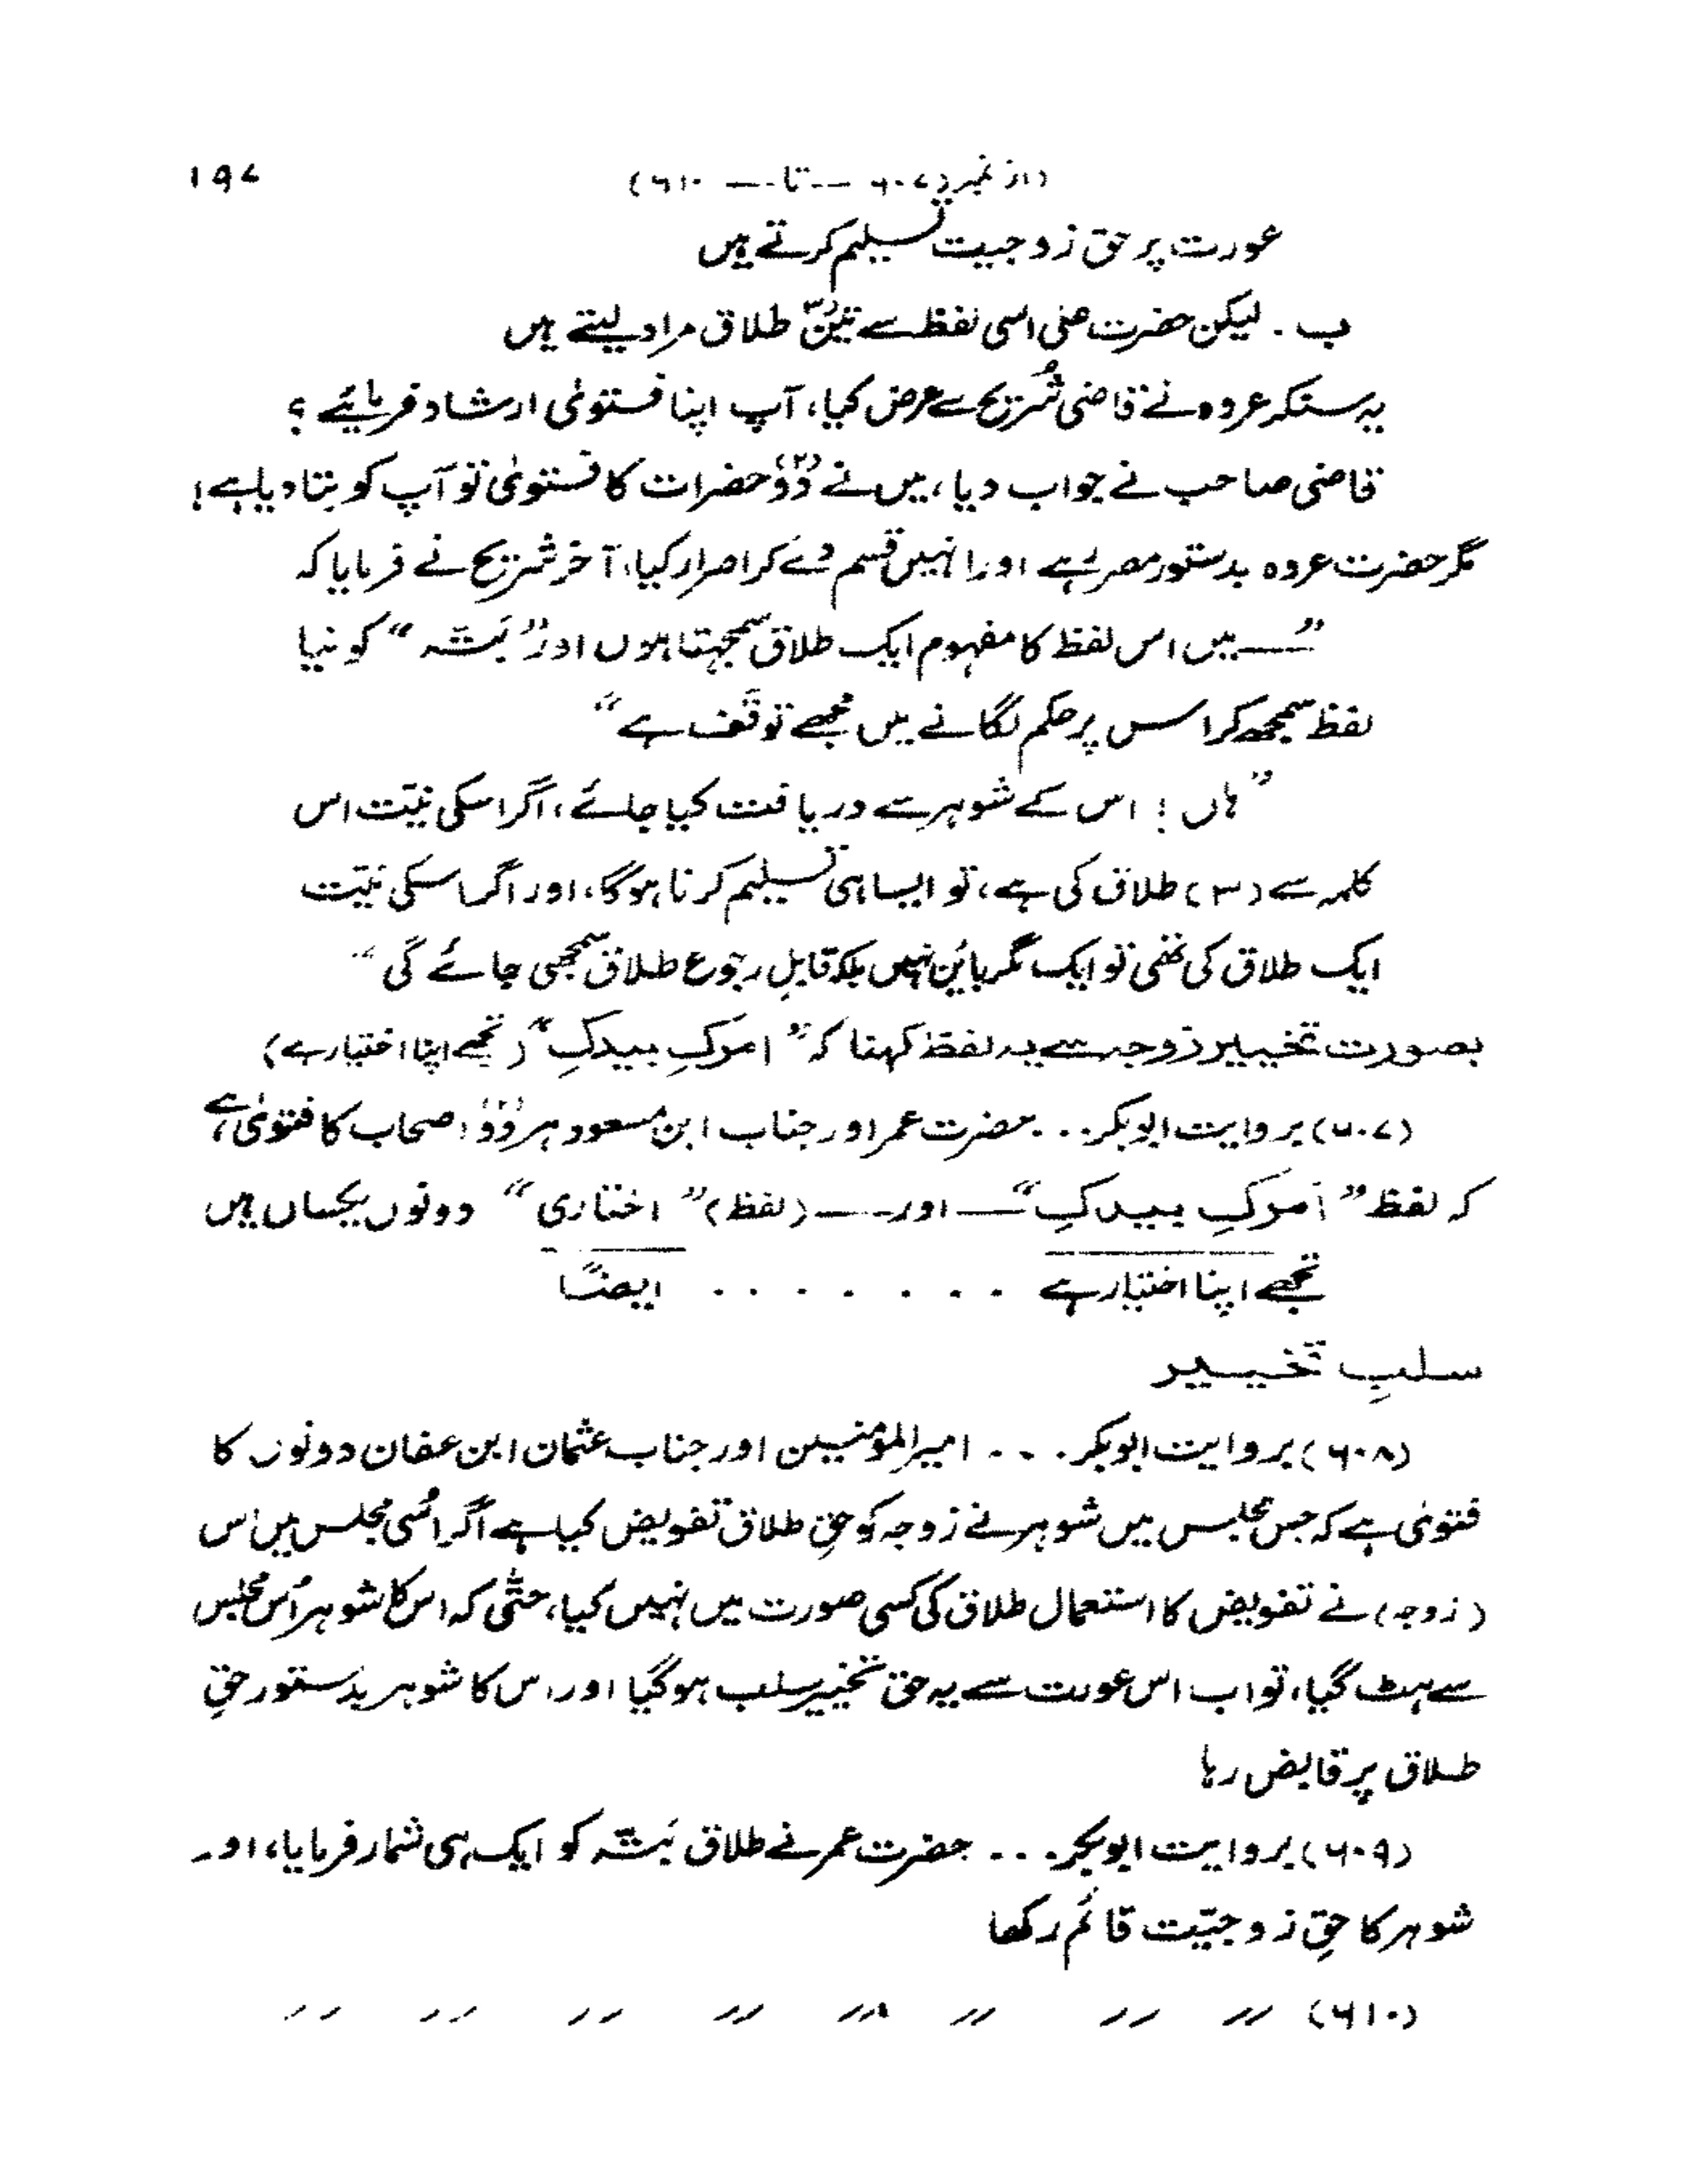 ۱۹۷
(از نمبر (۶۰۷ -- تا -- ۶۱۰)
عورت پر حق زوجیت تسلیم کرتے ہیں
ب . لیکن حضرت علی اسی لفظ سے تینؓ طلاق مراد لیتے ہیں
یہ سنکر عروہ نے قاضی شُریح سے عرض کیا، آپ اپنا فتویٰ ارشاد فرمایئے ؟
قاضی صاحب نے جواب دیا، میں نے دوؔ (۲) حضرات کا فتویٰ تو آپ کو بتا دیا ہے!
مگر حضرت عروہ بدستور مصر رہے اور انہیں قسم دے کر اصرار کیا، آخر شریح نے فرمایا کہ
” — میں اس لفظ کا مفہوم ایک طلاق سمجہتا ہوں اور ” بَتّہ “ کو نیا
لفظ سمجھ کر اس پر حکم لگانے میں مجھے توقّف ہے “
” ہاں ! اس کے شوہر سے دریافت کیا جائے، اگر اسکی نیّت اس
کلمہ سے (۳) طلاق کی ہے، تو ایسا ہی تسلیم کرنا ہوگا، اور اگر اسکی نیّت
ایک طلاق کی تھی تو ایک مگر بائن نہیں بلکہ قابلِ رجوع طلاق سمجھی جائے گی “
بصورت تخییر زوجہ سے یہ لفظ کہنا کہ ” امرکِ بیدکِ “ (تجھے اپنا اختیار ہے)
(۶۰۷) بروایت ابوبکر . . . حضرت عمر اور جناب ابن مسعود ہر دوؔ (۲) اصحاب کا فتویٰ ہے،
کہ لفظ ” اَمرکِ بیدکِ “ — اور — (لفظ) ” اختاری “ دونوں یکساں ہیں
تجھے اپنا اختیار ہے . . . . . . . . ایضاً
سلبِ تخییر
(۶۰۸) بروایت ابوبکر . . . امیرالمؤمنین اور جناب عثمان ابن عفان دونوں کا
فتویٰ ہے کہ جس مجلس میں شوہر نے زوجہ کو حقِ طلاق تفویض کیا ہے اگر اُسی مجلس میں اس
(زوجہ) نے تفویض کا استعمال طلاق کی کسی صورت میں نہیں کیا، حتّٰی کہ اس کا شوہر اُس مجلس
سے ہٹ گیا، تو اب اس عورت سے یہ حق تخییر سلب ہوگیا اور اس کا شوہر بدستور حقِ
طلاق پر قابض رہا
(۶۰۹) بروایت ابوبکر . . . حضرت عمر نے طلاق بَتّہ کو ایک ہی شمار فرمایا، اور
شوہر کا حقِ زوجیّت قائم رکھا
(۶۱۰) 〃 〃 〃 〃 〃 〃 〃 〃